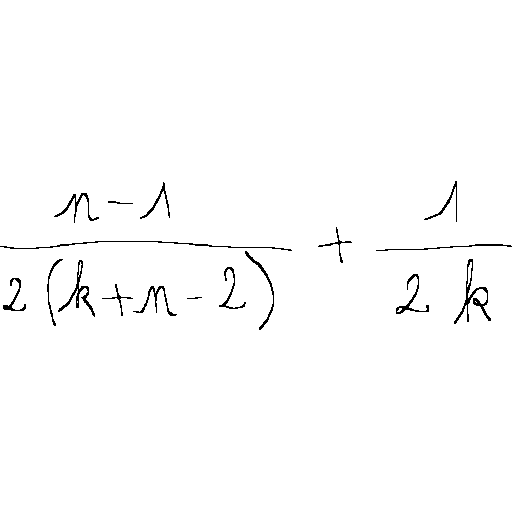 \frac{n-1}{2(k+n-2)} + \frac{1}{2k}